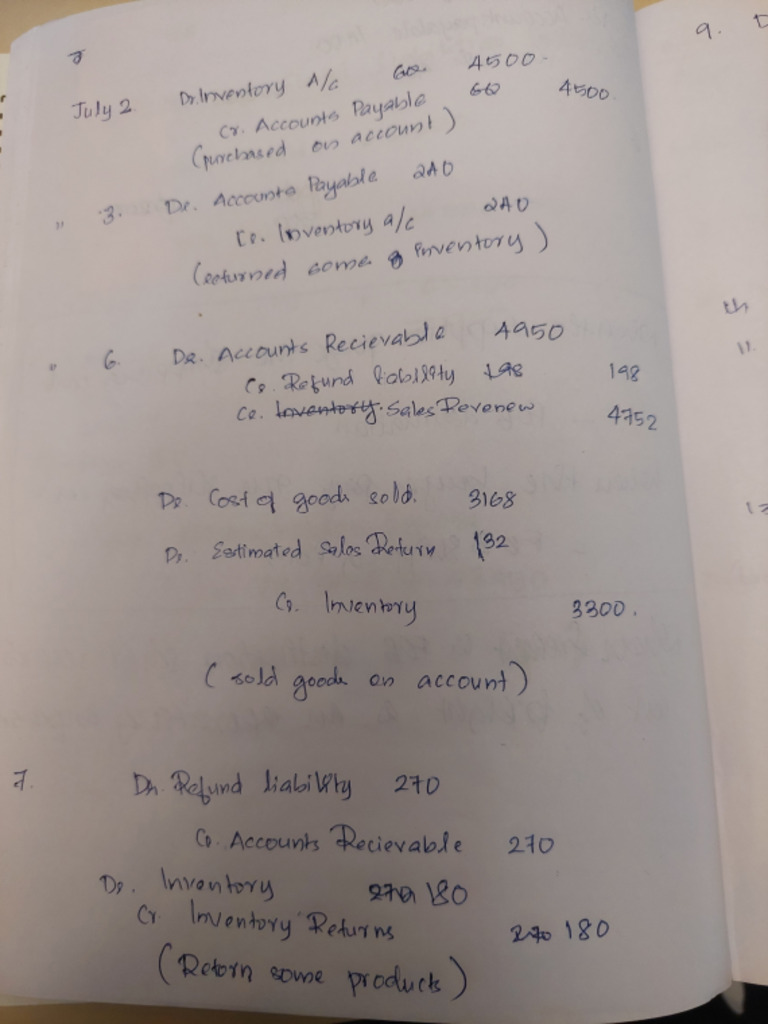 July 2 Dr. Inventory A/c 4500.
Cr. Accounts Payable 60 4500.
(purchased on account)
" 3. Dr. Accounts Payable 240
Cr. Inventory a/c 240
(returned some inventory)
" 6. Dr. Accounts Recievable 4950
Cr. Refund liability 198 198
Cr. Inventory. Sales Revenew 4752
Dr. Cost of goods sold. 3168
Dr. Estimated Sales Return 132
Cr. Inventory 3300.
(sold goods on account)
7. Dr. Refund liability 270
Cr. Accounts Recievable 270
Dr. Inventory 270 180
Cr Inventory Returns 270 180
(Return some products)
9. D
th
11.